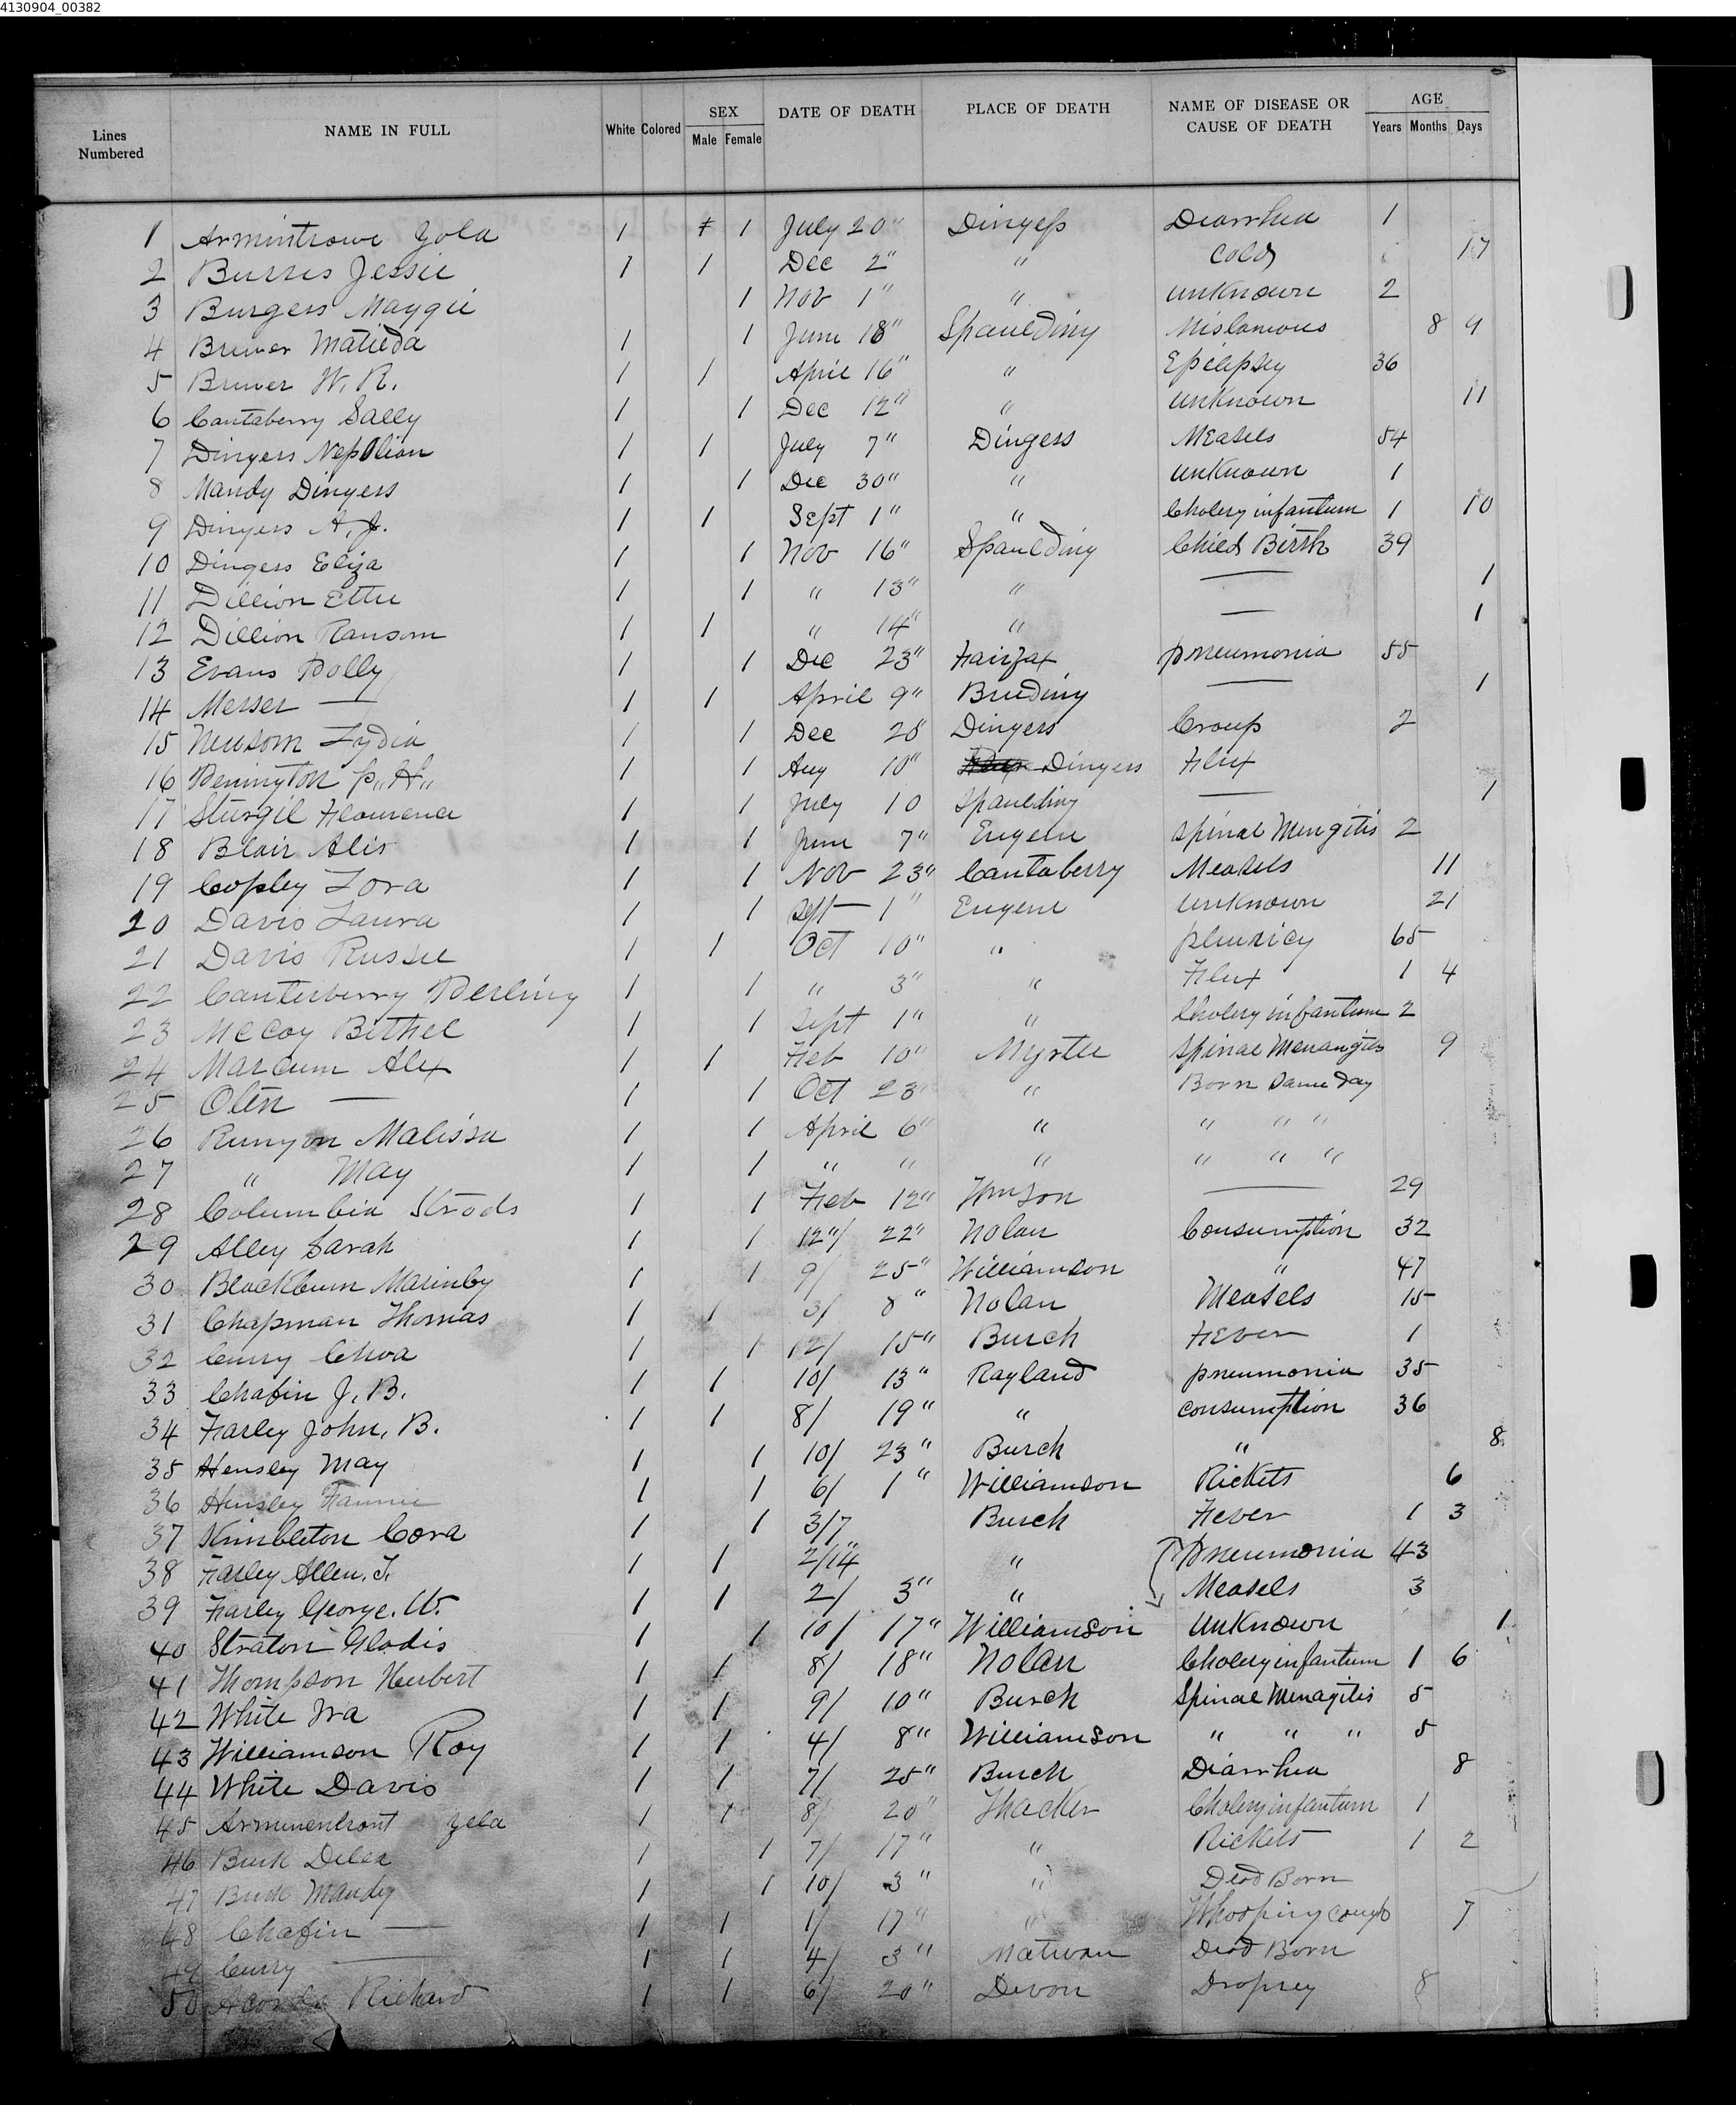 4130904_00382
Lines Numbered NAME IN FULL White Colored SEX Male Female DATE OF DEATH PLACE OF DEATH NAME OF DISEASE OR CAUSE OF DEATH AGE Years Months Days
1 Armintrowe Zola 1 1 July 20" Dingess Diarrhea 1
2 Burris Jessie 1 1 Dec 2" " Cold 17
3 Burgess Maggie 1 Nov 1" " unknown 2
4 Brewer Matilda 1 1 June 18" Spaulding 8 9
5 Brewer W. R. 1 1 April 16" " Epilepsey 36
6 Cantaberry Sally 1 1 Dec 12" " unknown 11
7 Dingess Nepolian 1 1 July 7" Dingess Measels 54
8 Mandy Dingess 1 1 Dec 30" " unknown 1
9 Dingess A. J. 1 1 Sept 1" " Cholery infantum 1 10
10 Dingess Eliza 1 1 Nov 16" Spaulding Child Birth 39
11 Dillion Ettie 1 1 " 13" " — 1
12 Dillion Ransom 1 1 " 14" " — 1
13 Evans Polly 1 1 Dec 23" Fairfax pneumonia 55
14 Messer — 1 1 April 9" Breeding — 1
15 Newsom Lydia 1 1 Dec 28 Dingess Croup 2
16 Penington P. H. 1 1 Aug 10" Dingess Flux
17 Sturgil 1 1 July 10 Spaulding — 1
18 Blair Alis 1 1 June 7" Eugene Spinal Mengitis 2
19 Copley Lora 1 1 Nov 23" Cantaberry Measels 11
20 Davis Laura 1 1 Sept 1" Eugene unknown 21
21 Davis Russie 1 1 Oct 10" " pluricy 65
22 Canterberry Perliny 1 1 " 3" " Flux 1 4
23 McCoy Bethel 1 1 Sept 1" " Cholery infantum 2
24 Marcum Alex 1 1 Feb 10" Myrtle Spinal Menangites 9
25 Olen — 1 1 Oct 23" " Born Same Day
26 Runyon Malissa 1 1 April 6" " " " "
27 " May 1 1 " " " " " "
28 Columbia Strods 1 1 Feb 12" — 29
29 Alley Sarah 1 1 12"/ 22" Nolan Consumption 32
30 Blackburn Marinby 1 1 9/ 25" Williamson " 47
31 Chapman Thomas 1 1 3/ 8" Nolan Measels 15
32 Curry Choa 1 1 12/ 15" Burch Fever 1
33 Chafin J. B. 1 1 10/ 13" Rayland pneumonia 35
34 Farley John, B. 1 1 8/ 19" " consumption 36
35 Hensley May 1 1 10/ 23" Burch " 8
36 Hensley Fannie 1 1 6/ 1" Williamson Rickets 6
37 Kimbleton Cora 1 1 3/7 Burch Fever 1 3
38 Farley Allen. J. 1 1 2/14" " pneumonia 43
39 Farley George. W. 1 1 2/ 3" " Measels 3
40 Straton Gladis 1 1 10/ 17" Williamson Unknown 1
41 Thompson Herbert 1 1 8/ 18" Nolan Cholery infantum 1 6
42 White Ira 1 1 9/ 10" Burch Spinal Menagitis 5
43 Williamson Roy 1 1 4/ 8" Williamson " " " 5
44 White Davis 1 1 7/ 25" Burch Diarrhea 8
45 Armenentront Zela 1 1 8/ 20" Thacker Cholery infantum 1
46 Burk Delea 1 1 7/ 17" " Rickets 1 2
47 Burk Mandy 1 1 10/ 3" " Dead Born
48 Chafin — 1 1 1/ 17" " Whooping cough 7
49 Curry — 1 1 4/ 3" Matwan Dead Born
50 Richard 1 1 6/ 20" Devon Dropsey 8